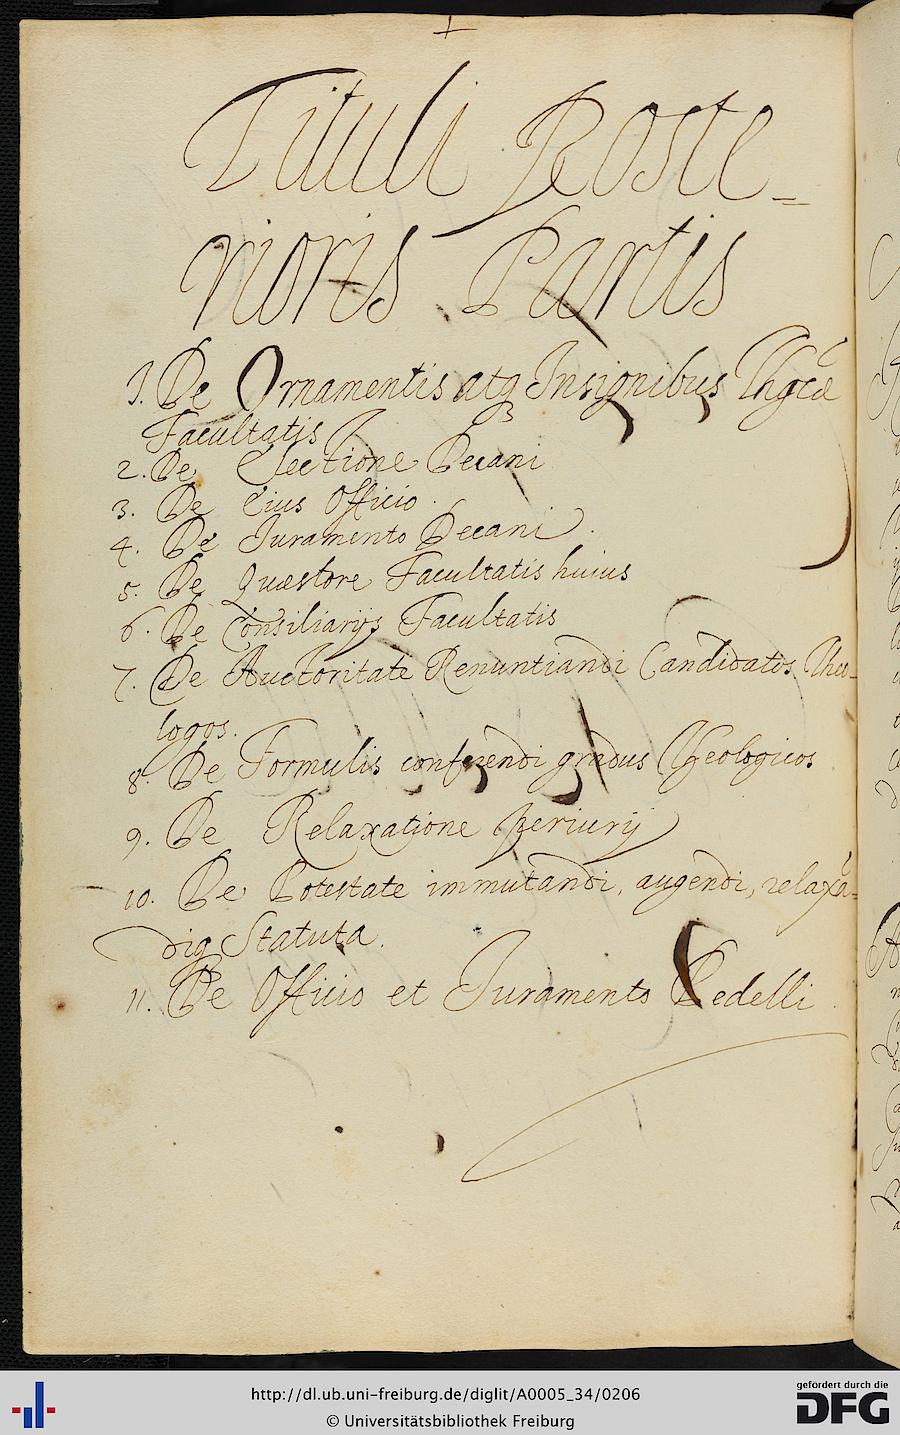 Tituli Poste=
rioris Partis
1. De Ornamentis atq Insignibus Thgcæ
Facultatis
2. De Electione Decani
3. De Eius Officio.
4. De Iuramento Decani.
5. De Quæstore Facultatis huius
6. De Consiliarijs Facultatis
7. De Auctoritate Renuntiandi Candidatos Theo-
logos.
8. De Formulis conferendi gradus Theologicos
9. De Relaxatione periurij
10. De Potestate immutandi, augendi, relaxā=
diq Statuta.
11. De Officio et Iuramento Pedelli
http://dl.ub.uni-freiburg.de/diglit/A0005_34/0206
© Universitätsbibliothek Freiburg
gefördert durch die
DFG